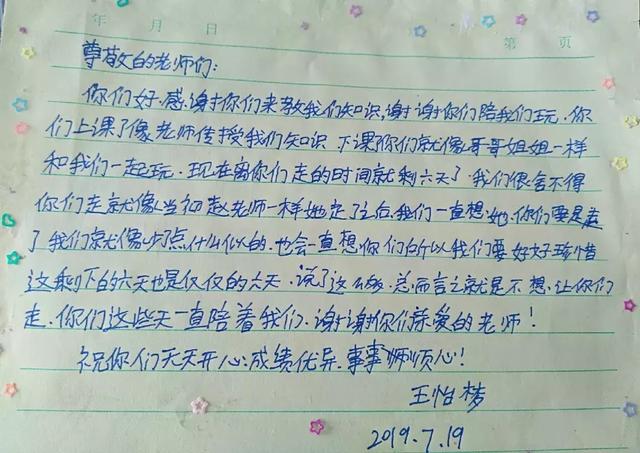 年 月 日
第 页
尊敬的老师们:
你们好,感谢你们来教我们知识,谢谢你们陪我们玩.你
们上课了像老师传授我们知识 下课你们就像哥哥姐姐一样
和我们一起玩.现在离你们走的时间就剩六天了.我们很舍不得
你们走就像当初赵老师一样她走了之后我们一直想她.你们要是走
了我们就像少点什么似的.也会一直想你们所以我们要好好珍惜
这剩下的六天也是仅仅的六天.说了这么多.总而言之就是不想让你们
走.你们这些天一直陪着我们.谢谢你们亲爱的老师!
祝你们天天开心.成绩优异.事事顺心!
王怡梦
2019.7.19